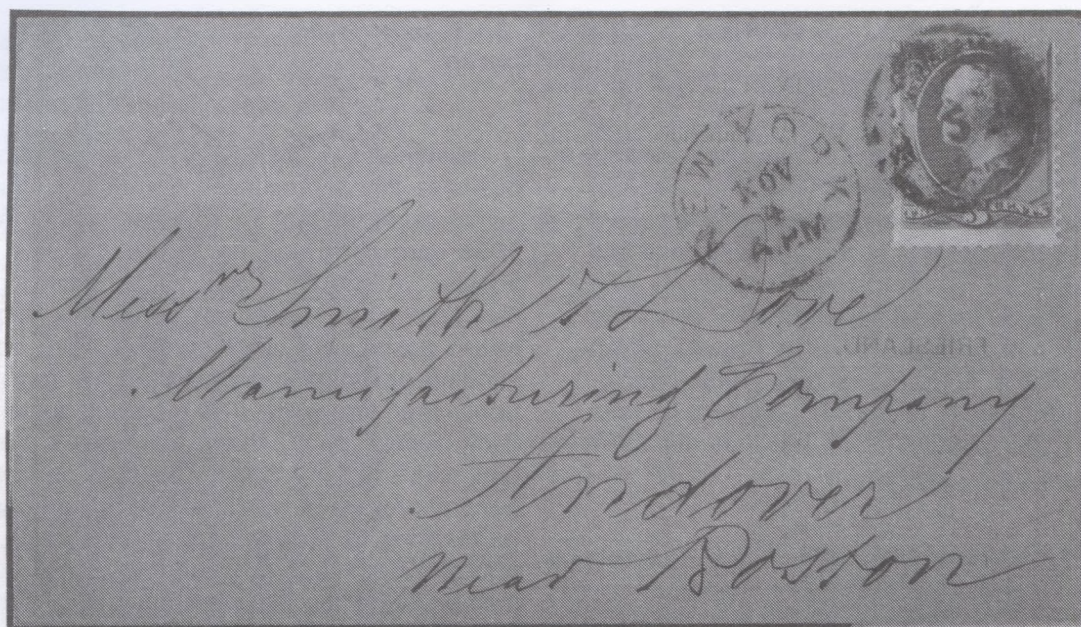 NEW YORK
NOV
4
4 PM
Messrs Smith & Dove
Manufacturing Company
Andover
near Boston
FRIESLAND.